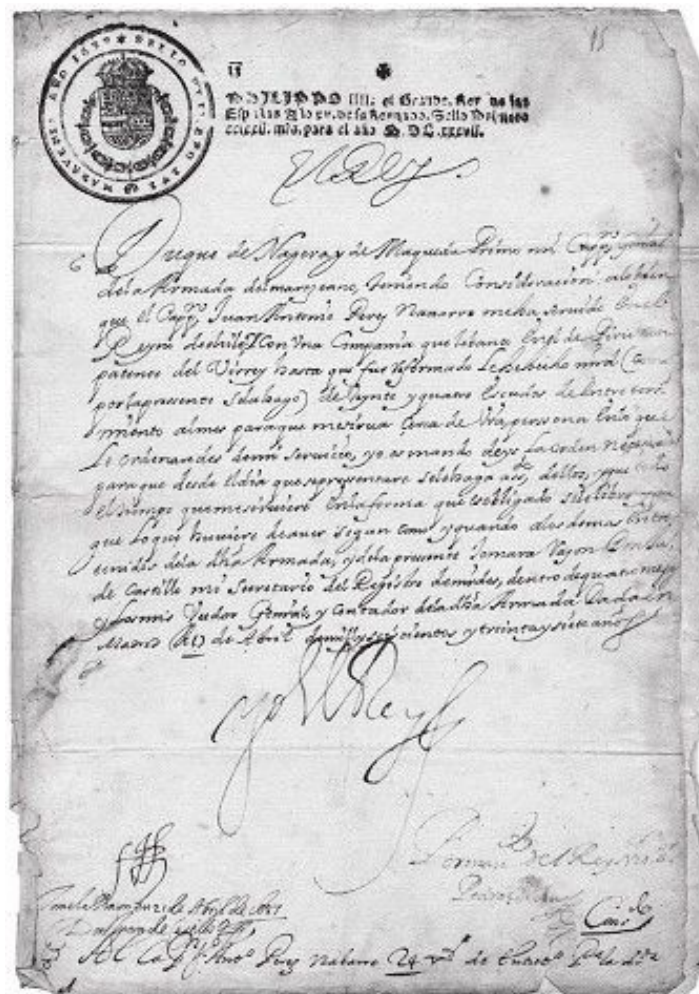 15
SELLO
AÑO 1637
MARAVEDI
PHILIPPO IIII. el Grande, Rey de las
Españas Año XV. de su Reynado, Sello
para el año M.DC.XXXVII.
El Rey.
Duque de Nagera, y de Maqueda Primo mi Capp. general
dela Armada del mar oceano, teniendo Consideracion a lo bien
que el Capp. Juan Antonio Perez Navarro me ha servido en el
Reyno de chile Con Una Compañia que lebanto en el de Piru con
patente del Virrey hasta que fue reformado Le he hecho mrd (como
por la presente se la hago) de Veynte y quatro escudos de entreteni
miento al mes para que me sirva cerca de Vra persona en lo que
Le ordenaredes de mi servicio, yo os mando deys La orden necesaria
para que desde el dia que se presentare se le haga de ellos, y que todo
el tiempo que me sirviere en la forma que es obligado se le libre y pague
que lo que huviere de aver segun como y quando a los demas entre
tenidos de la dha Armada, y de la presente tomara Razon
de Castillo mi Secretario del Registro de mrdes, dentro de quatro meses
y los mis Veedor General, y Contador de la dha Armada Dada en
Madrid a 17 de Abril de mill y seiscientos y treinta y siete años
yo el Rey
Por man.do del Rey nro s.r
Pedro
de Abril de 1637
Al Cap.n Ju.o Ant.o Perez Nabarro 24 de Entret.o